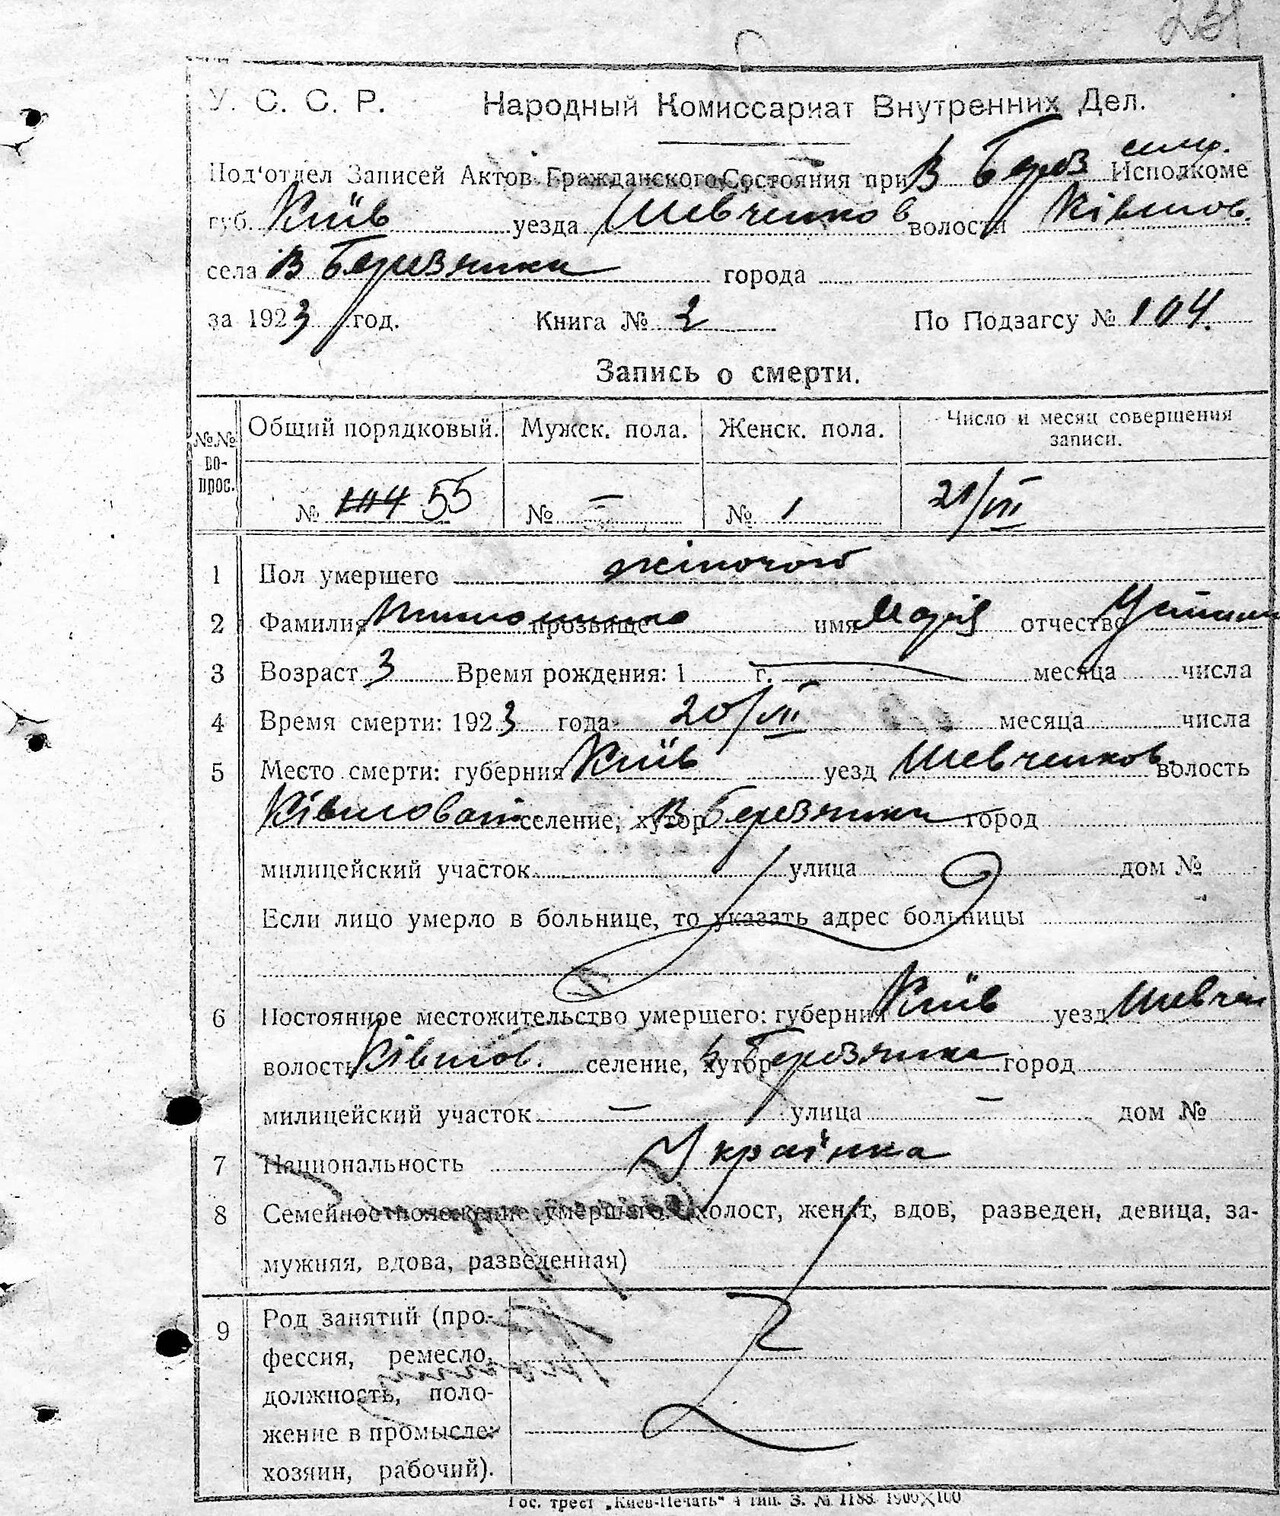 231
У. С. С. Р. Народный Комиссариат Внутренних Дел.
Под'отдел Записей Актов Гражданского Состояния при В Берез сільр. Исполкоме
губ. Київ уезда Шевченков волости Ківшов.
села В Березянки города
за 1923 год. Книга № 2 По Подзагсу № 104.
Запись о смерти.
№№ во-прос. Общий порядковый. Мужск. пола. Женск. пола. Число и месяц совершения записи.
№ 104 55 № — № 1 21/VII
1 Пол умершего жіночой
2 Фамилия прозвище имя Марія отчество
3 Возраст 3 Время рождения: 1 г. месяца числа
4 Время смерти: 1923 года 20/VII месяца числа
5 Место смерти: губерния Київ уезд Шевченков. волость
Ківшоват селение, хутор В Березянки город
милицейский участок улица дом №
Если лицо умерло в больнице, то указать адрес больницы
6 Постоянное местожительство умершего: губерния Київ уезд Шевчен
волость Ківшов. селение, хутор В Березянка город
милицейский участок — улица — дом №
7 Национальность Українка
8 Семейное положение умершего: (холост, женат, вдов, разведен, девица, за-
мужняя, вдова, разведенная)
9 Род занятий (про-
фессия, ремесло,
должность, поло-
жение в промысле:
хозяин, рабочий).
Гос. трест „Киев-Печать" 4 тип. З. № 1188. 1900×100